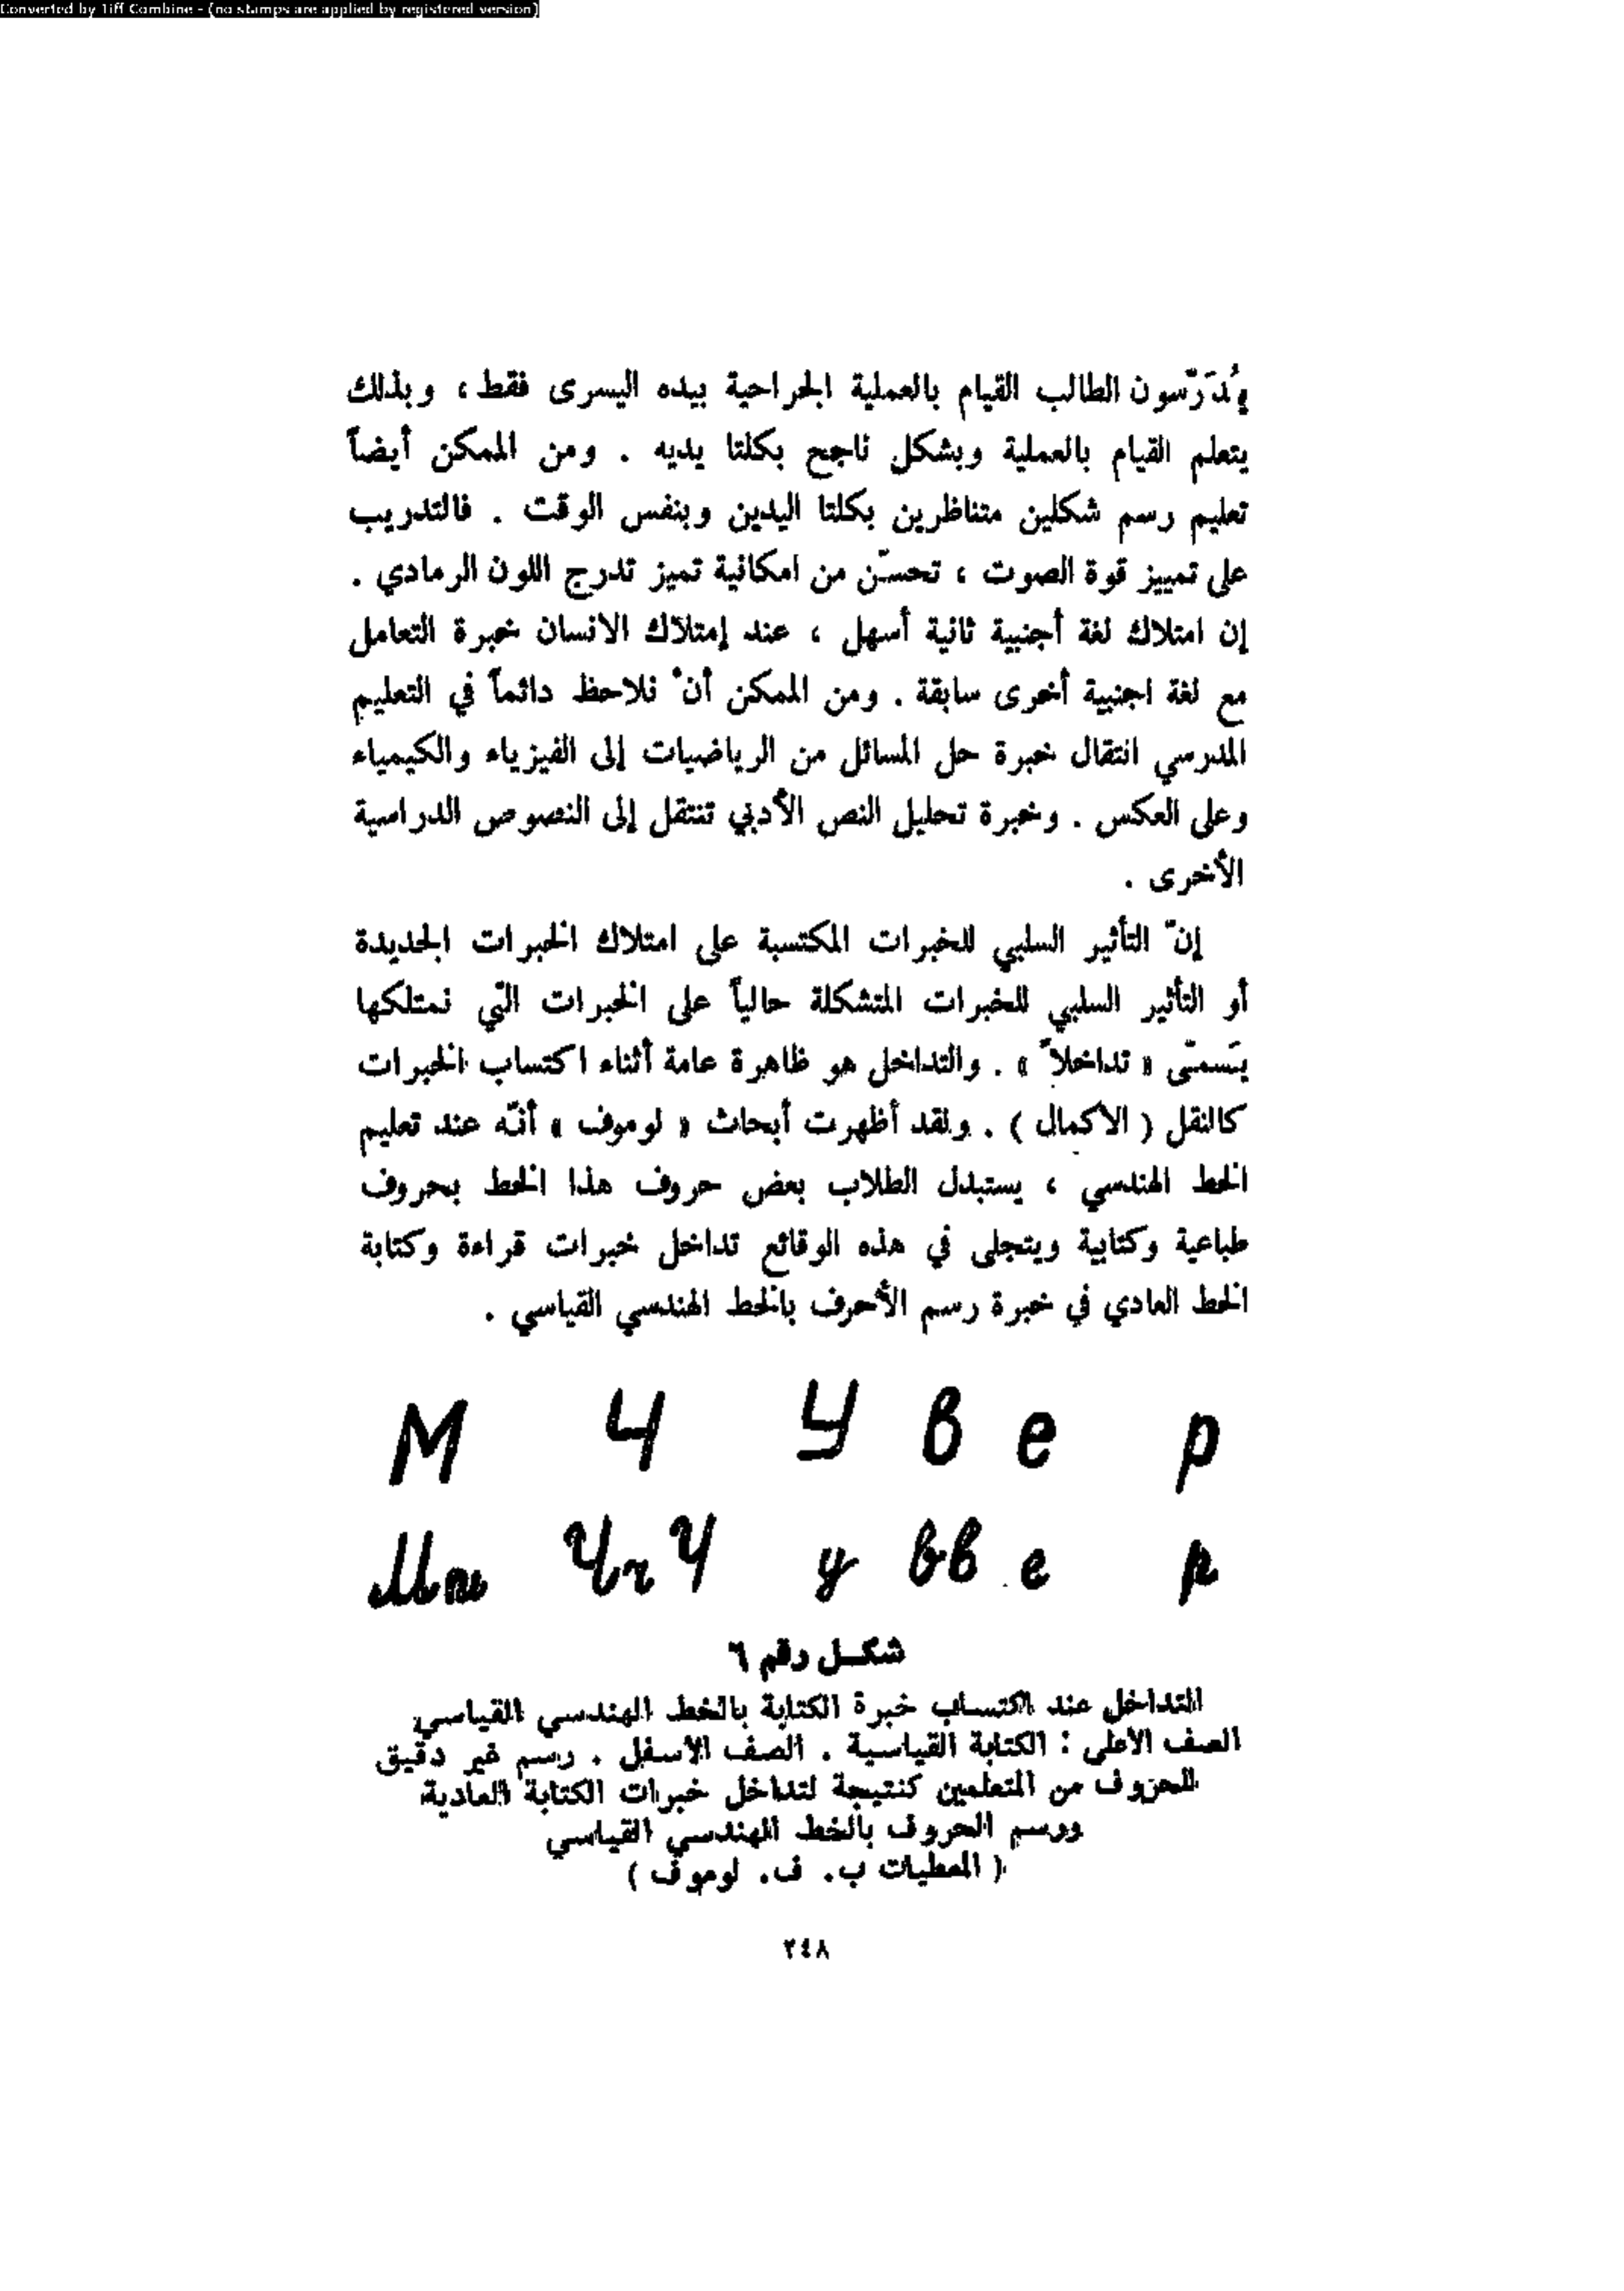 Converted by Tiff Combine - (no stamps are applied by registered version)
يُدَرّسون الطالب القيام بالعملية الجراحية بيده اليسرى فقط ، وبذلك
يتعلم القيام بالعملية وبشكل ناجح بكلتا يديه . ومن الممكن أيضاً
تعليم رسم شكلين متناظرين بكلتا اليدين وبنفس الوقت . فالتدريب
على تمييز قوة الصوت ، تحسّن من امكانية تميز تدرج اللون الرمادي .
إن امتلاك لغة أجنبية ثانية أسهل ، عند إمتلاك الانسان خبرة التعامل
مع لغة اجنبية أخرى سابقة . ومن الممكن أنْ نلاحظ دائماً في التعليم
المدرسي انتقال خبرة حل المسائل من الرياضيات إلى الفيزياء والكيمياء
وعلى العكس . وخبرة تحليل النص الأدبي تنتقل إلى النصوص الدراسية
الأخرى .
إنّ التأثير السلبي للخبرات المكتسبة على امتلاك الخبرات الجديدة
أو التأثير السلبي للخبرات المتشكلة حالياً على الخبرات التي نمتلكها
يَسمىّ « تداخلاً » . والتداخل هو ظاهرة عامة أثناء اكتساب الخبرات
كالنقل ( الاكمال ) . ولقد أظهرت أبحاث « لوموف » أنّه عند تعليم
الخط الهندسي ، يستبدل الطلاب بعض حروف هذا الخط بحروف
طباعية وكتابية ويتجلى في هذه الوقائع تداخل خبرات قراءة وكتابة
الخط العادي في خبرة رسم الأحرف بالخط الهندسي القياسي .
М Ч У в е р
М т Ч ч Ч у в в е р
شكل رقم ٦
التداخل عند اكتساب خبرة الكتابة بالخط الهندسي القياسي
الصف الأعلى : الكتابة القياسية . الصف الأسفل . رسم غير دقيق
للحروف من المتعلمين كنتيجة لتداخل خبرات الكتابة العادية
ورسم الحروف بالخط الهندسي القياسي
( المعطيات ب . ف . لوموف )
٢٤٨